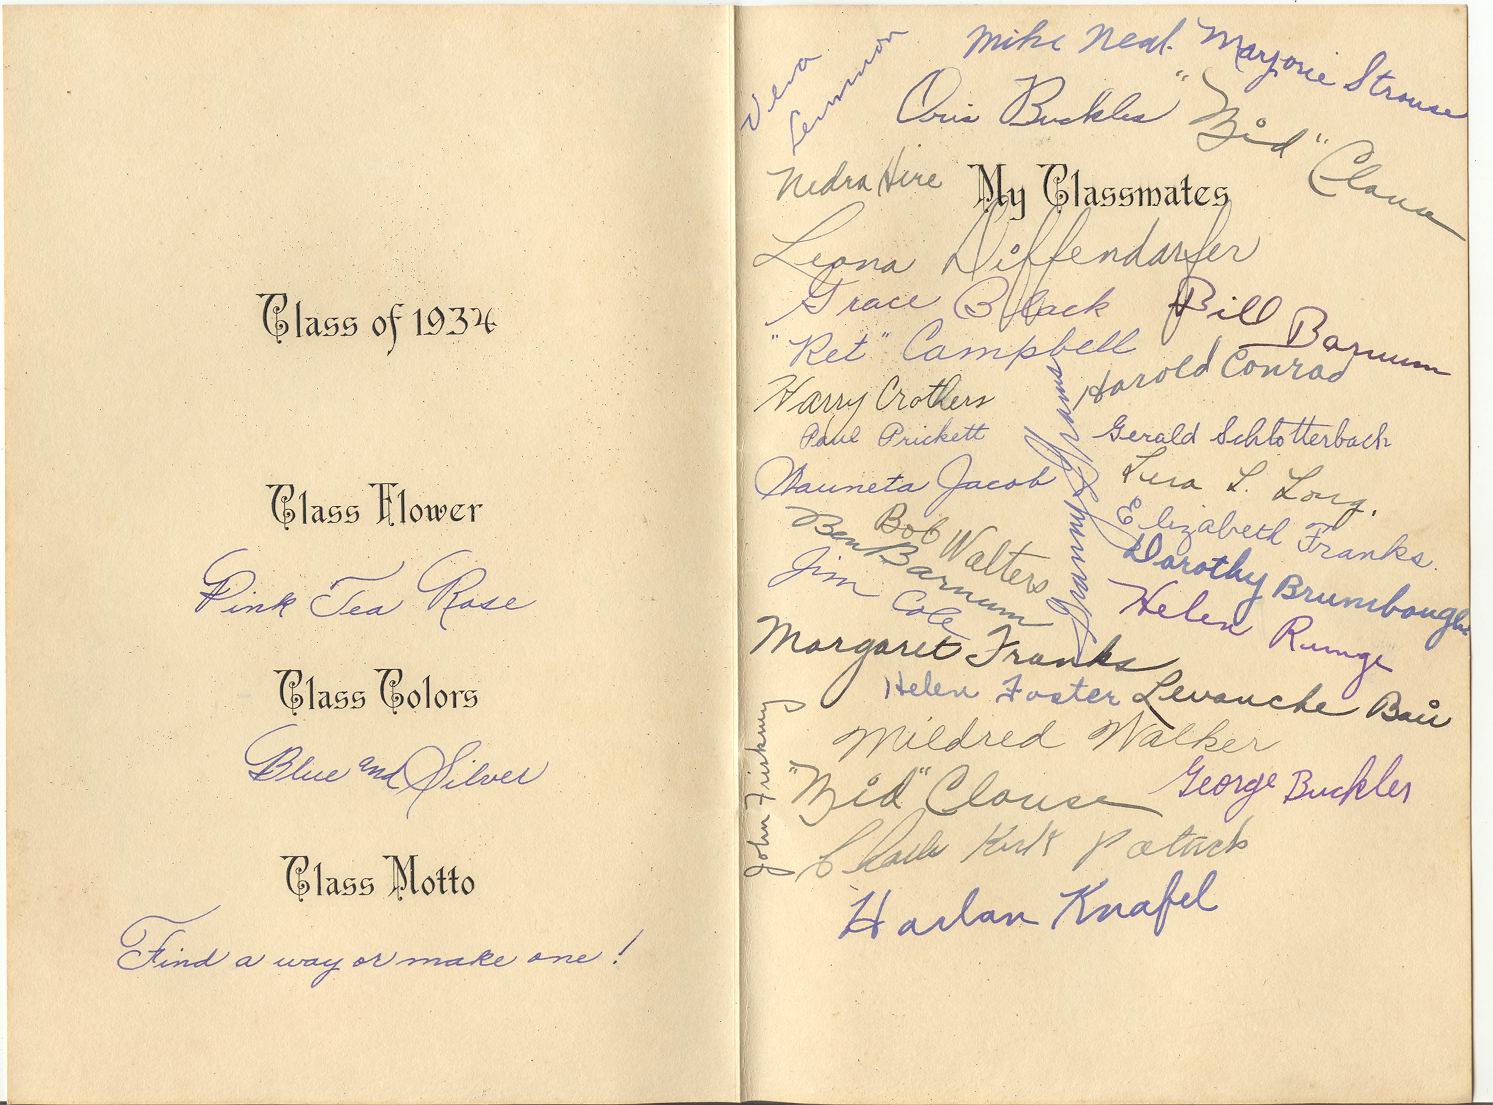 Class of 1934
Class Flower
Pink Tea Rose
Class Colors
Blue and Silver
Class Motto
Find a way or make one!
Vera Lemmon
Mike Neal
Marjorie Strouse
Oris Buckles
"Zid" Clouse
Nedra Hire
My Classmates
Leona Diffendarfer
Grace Black
Bill Barnum
"Ret" Campbell
Harold Conrad
Harry Crothers
Paul Prickett
Gerald Schlotterback
Wauneta Jacob
Lura L. Long.
Bob Walters
Elizabeth Franks.
Ben Barnum
Dorothy Brumbaugh
Jim Cole
Helen Runge
Margaret Franks
Helen Foster
Levanche
Mildred Walker
"Zid" Clouse
George Buckles
John
Kirk Patrick
Harlan Knafel